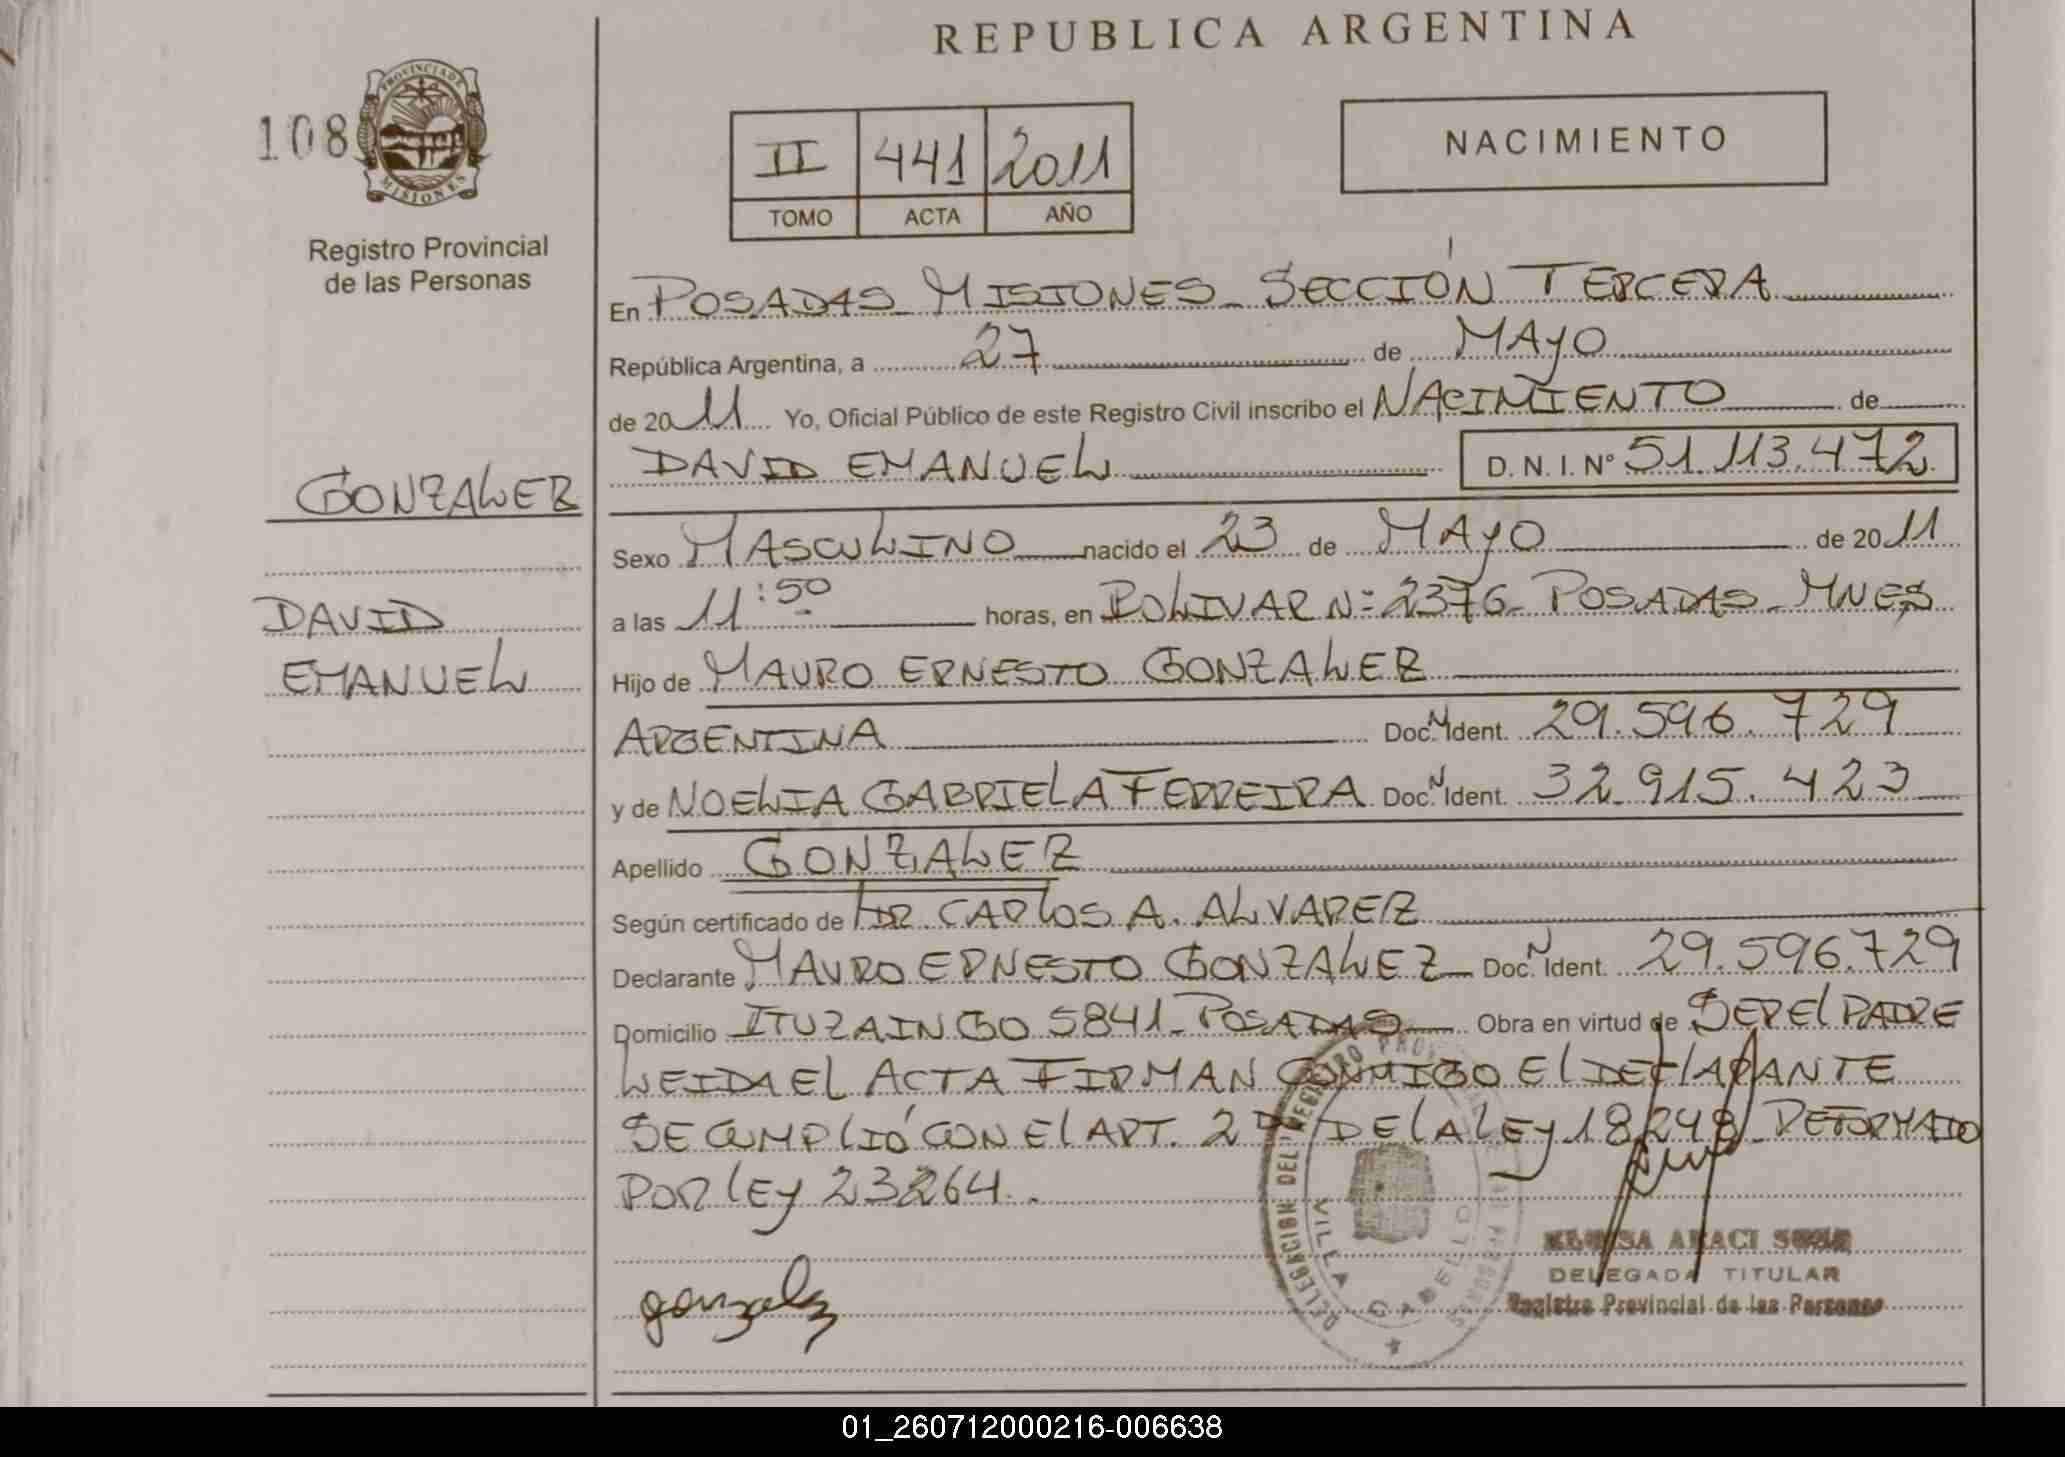 REPUBLICA ARGENTINA
108
PROVINCIA DE
MISIONES
Registro Provincial
de las Personas
II 441 2011
TOMO ACTA AÑO
NACIMIENTO
En POSADAS MISIONES - SECCIÓN TERCERA
República Argentina, a 27 de MAYO
de 2011 Yo, Oficial Público de este Registro Civil inscribo el NACIMIENTO de
DAVID EMANUEL D. N. I. N° 51.113.472
GONZALEZ
DAVID
EMANUEL
Sexo MASCULINO nacido el 23 de MAYO de 2011
a las 11:50 horas, en BOLIVAR N= 2376 - POSADAS - MNES
Hijo de MAURO ERNESTO GONZALEZ
ARGENTINA Doc. N Ident. 29.596.729
y de NOELIA GABRIELA FERREIRA Doc. N Ident. 32.915.423
Apellido GONZALEZ
Según certificado de DR. CARLOS A. ALVAREZ
Declarante MAURO ERNESTO GONZALEZ Doc. N Ident. 29.596.729
Domicilio ITUZAINGO 5841 - POSADAS Obra en virtud de SER EL PADRE
LEIDA EL ACTA FIRMAN CONMIGO EL DECLARANTE
SE CUMPLIÓ CON EL ART. 2D DE LA LEY 18248 - REFORMADO
POR LEY 23264.
gonzalez
DELEGACION DEL REGISTRO PROVINCIAL DE LAS PERSONAS
VILLA CABELLO
ARACI
DELEGADA TITULAR
Registro Provincial de las Personas
01_260712000216-006638